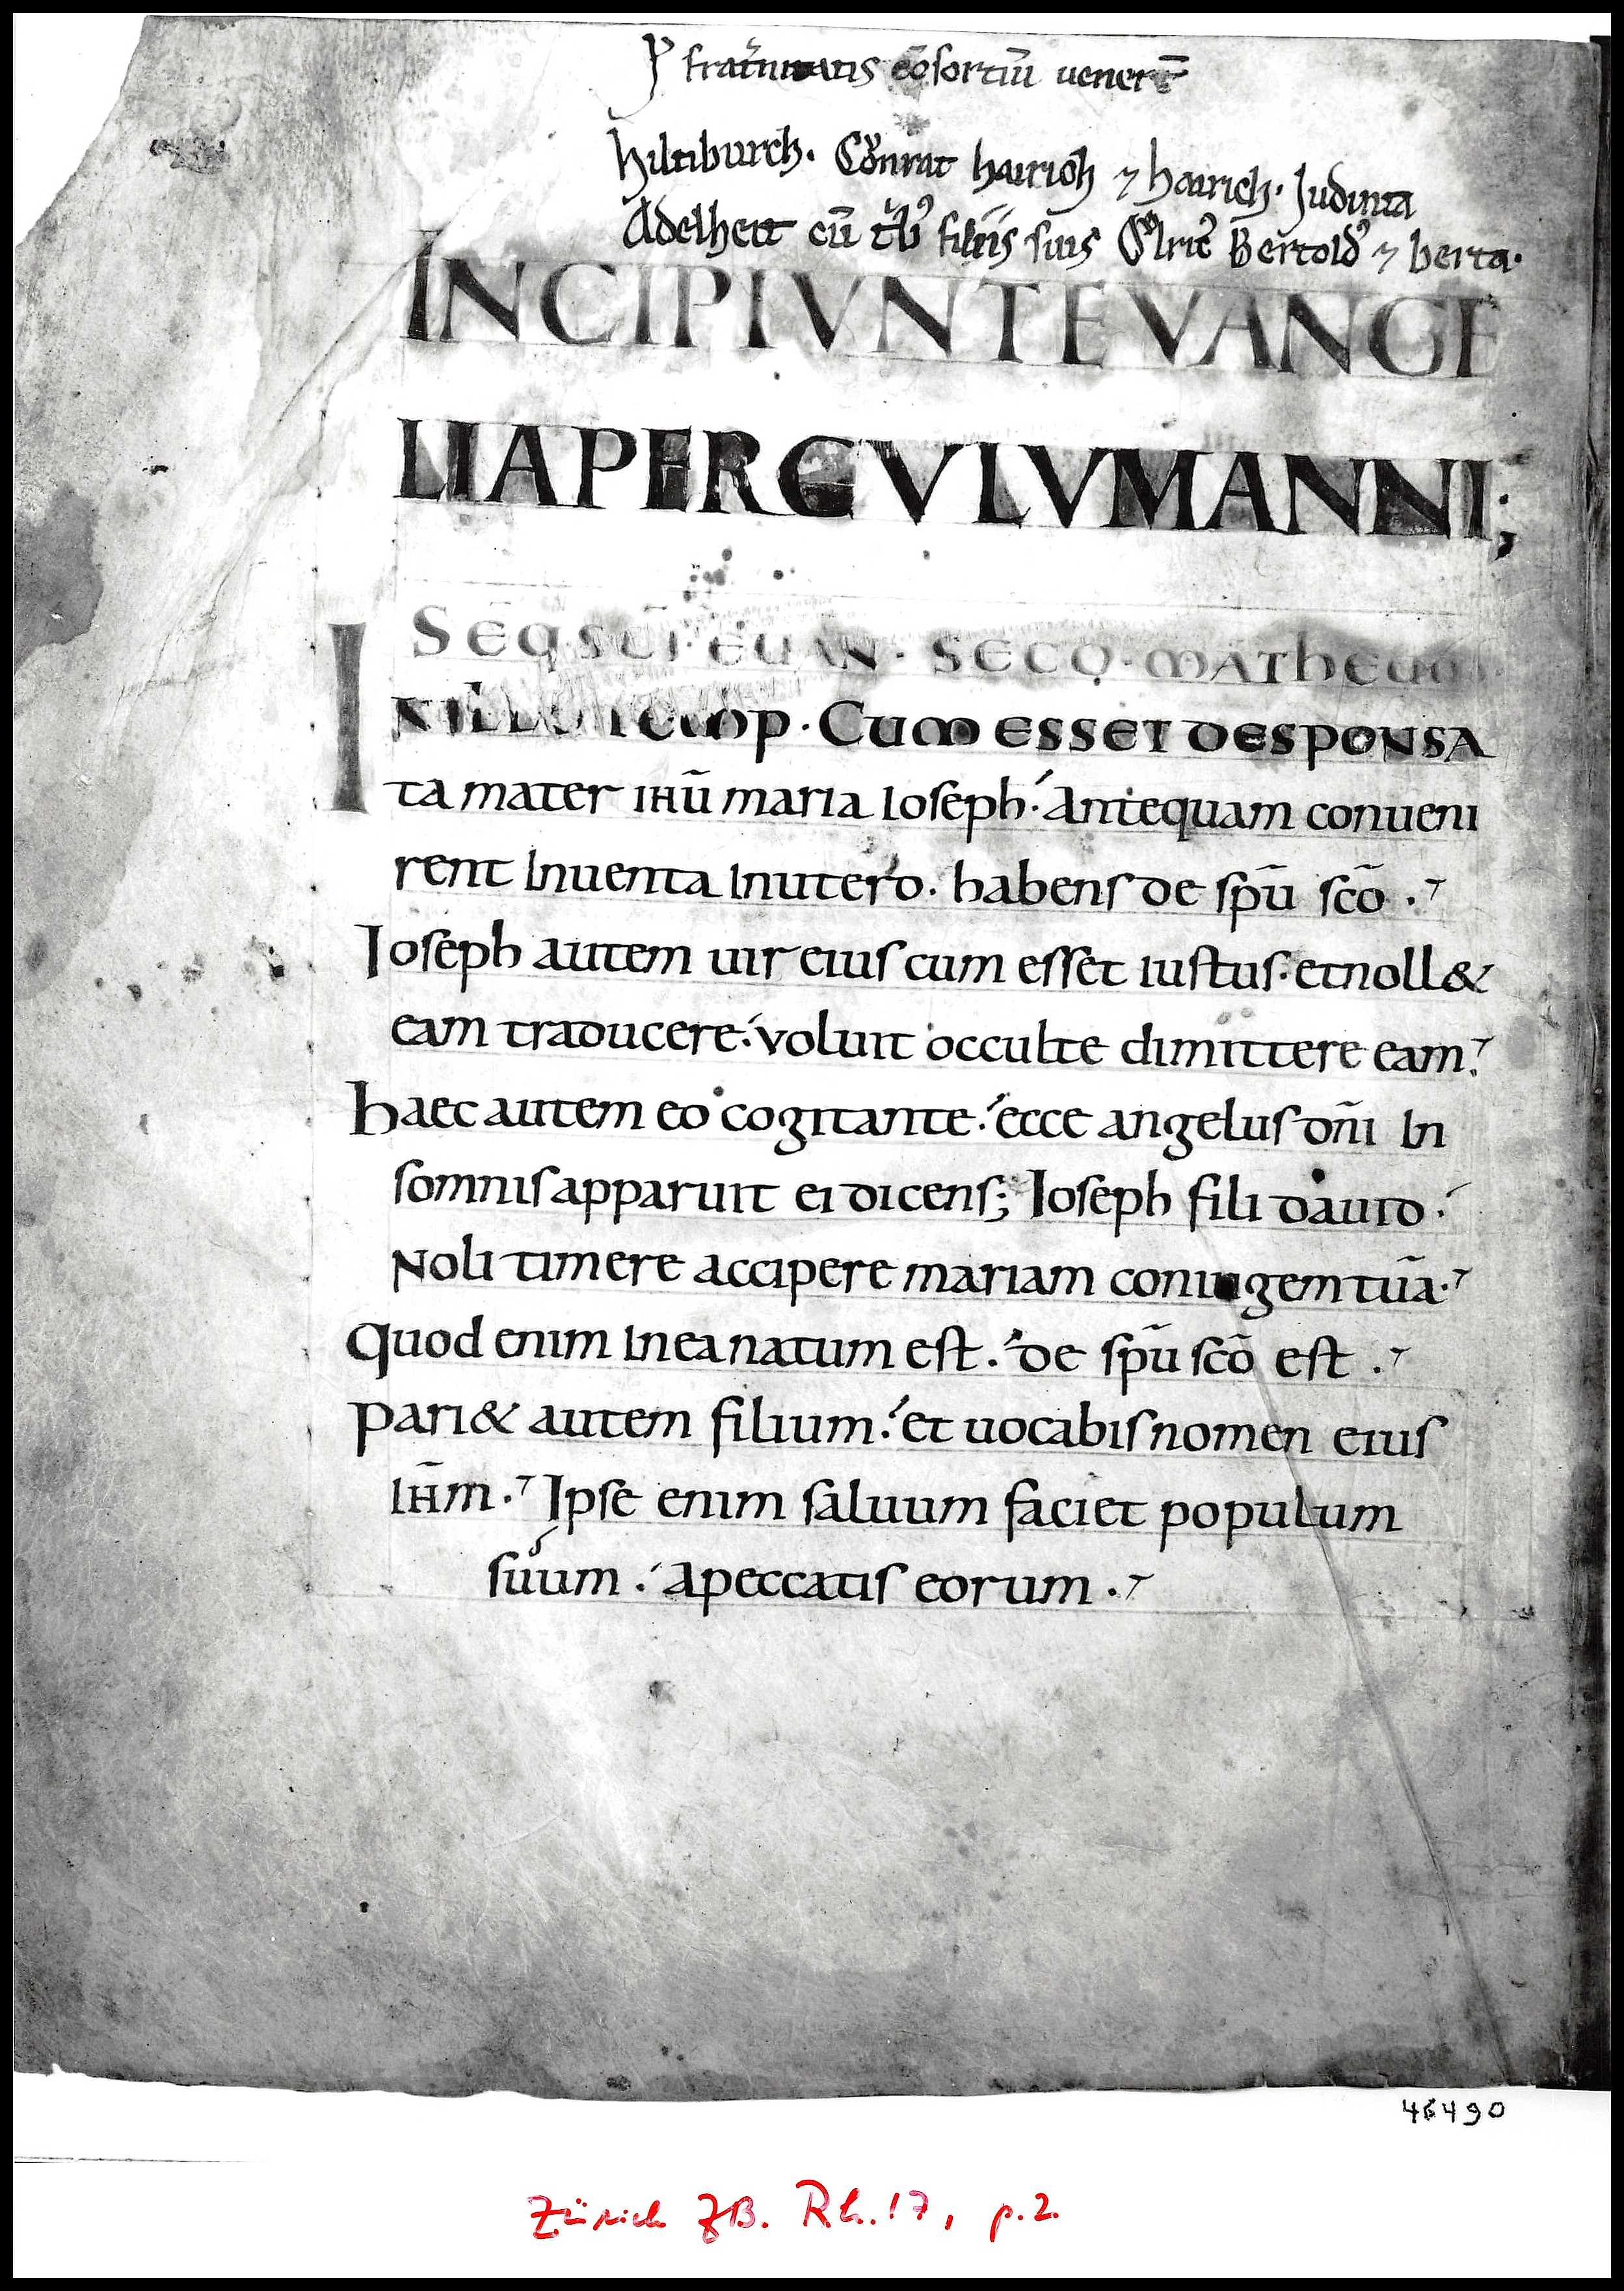 frat̄nitatis c̄osortiū uener̄t
hiltiburch. Cuͦnrat hairich ⁊ hairich. Judinta
Adelheit cū t'bꝰ filiis suis Oͮlric̄ Bertoldꝰ ⁊ berta.
INCIPIVNT EVANGE
LIA PER CVLVMANNI;
SEQ SC̄I EUAN. SECD. MATHEUM
IN ILLO TEMP. CUM ESSET DESPONSA
ta mater ihū maria Ioseph. Antequam conueni
rent Inuenta Inutero. habens de sp̄u sc̄o.
Ioseph autem uir eius cum esset iustus. et noll&
eam traducere. voluit occulte dimittere eam.
haec autem eo cogitante. ecce angelus dn̄i In
somnis apparuit ei dicens; Ioseph fili dauid.
Noli timere accipere mariam coniugem tuā.
Quod enim Inea natum est. de sp̄u sc̄o est.
pari& autem filium. et uocabis nomen eius
ih̄m. Ipse enim saluum faciet populum
suum. apeccatis eorum.
46490
Zürich ZB. Rh. 17, p. 2.